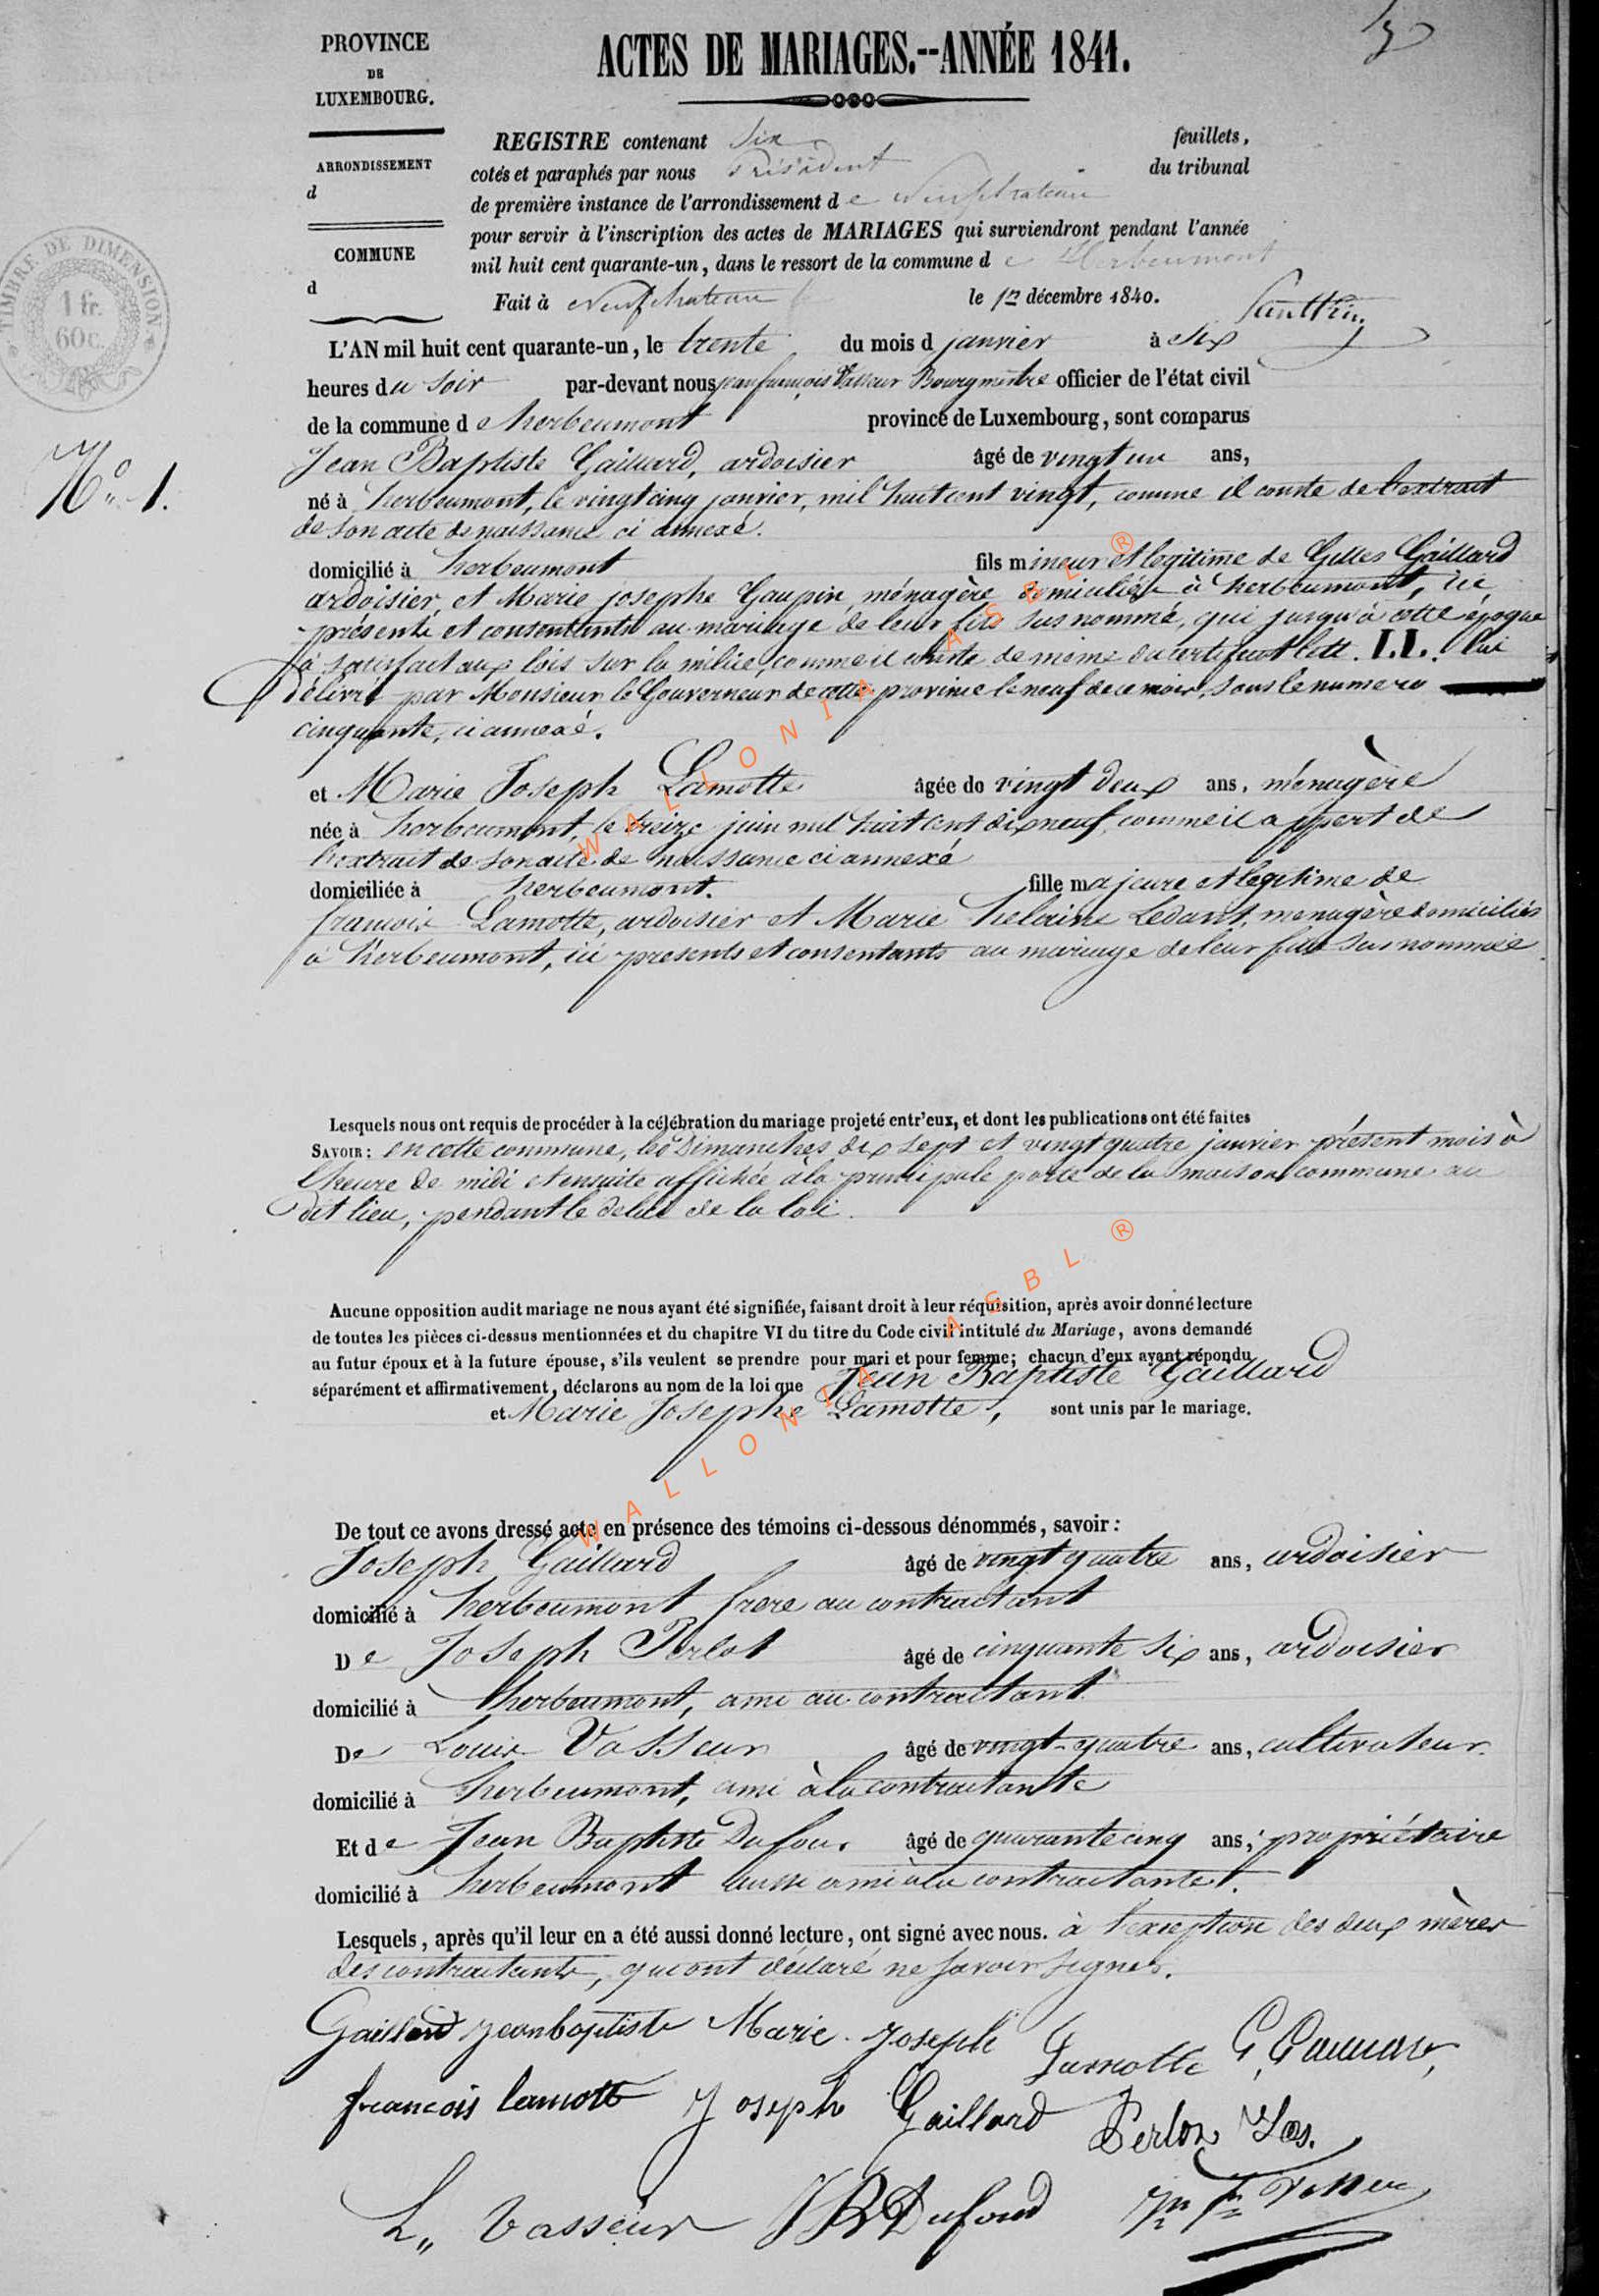 PROVINCE
DE
LUXEMBOURG.
ARRONDISSEMENT
d
COMMUNE
d
TIMBRE DE DIMENSION
1 fr.
60 c.
No. 1.
3
ACTES DE MARIAGES.--ANNÉE 1841.
REGISTRE contenant Six feuillets,
cotés et paraphés par nous Président du tribunal
de première instance de l'arrondissement de Neufchateau
pour servir à l'inscription des actes de MARIAGES qui surviendront pendant l'année
mil huit cent quarante-un, dans le ressort de la commune de Herbeumont
Fait à Neufchateau le 1er décembre 1840.
L'AN mil huit cent quarante-un, le trente du mois d janvier à Six
heures du soir par-devant nous jean françois Vasseur Bourgmestre officier de l'état civil
de la commune d e herbeumont province de Luxembourg, sont comparus
Jean Baptiste Gaillard, ardoisier âgé de vingt un ans,
né à herbeumont, le vingt cinq janvier, mil huit cent vingt, comme il conste de l'extrait
de son acte de naissance ci annexé.
domicilié à herbeumont fils mineur et legitime de Gilles Gaillard
ardoisier, et Marie josephe Gaupin, ménagère domiciliés à herbeumont, ici
présents et consentants au mariage de leur fils sus nommé, qui jusqu'à cette époque
a satisfait aux lois sur la milice, comme il conste de même du certificat litt. I.I. lui
délivré par Monsieur le Gouverneur de cette province le neuf de ce mois, sous le numero
cinquante, ci annexé.
et Marie Joseph Lamotte âgée de vingt deux ans, ménagère
née à herbeumont, le treize juin mil huit cent dix neuf, comme il appert de
l'extrait de son acte de naissance ci annexé
domiciliée à herbeumont. fille majeure et legitime de
françois Lamotte, ardoisier et Marie helaine Ledant, menagère domiciliés
à herbeumont, ici presents et consentants au mariage de leur fille sus nommée
Lesquels nous ont requis de procéder à la célébration du mariage projeté entr'eux, et dont les publications ont été faites
SAVOIR: en cette commune, les Dimanches dix sept et vingt quatre janvier présent mois à
l'heure de midi et ensuite affichée à la principale porte de la maison commune au
dit lieu, pendant le delai de la loi.
Aucune opposition audit mariage ne nous ayant été signifiée, faisant droit à leur réquisition, après avoir donné lecture
de toutes les pièces ci-dessus mentionnées et du chapitre VI du titre du Code civil intitulé du Mariage, avons demandé
au futur époux et à la future épouse, s'ils veulent se prendre pour mari et pour femme; chacun d'eux ayant répondu
séparément et affirmativement, déclarons au nom de la loi que Jean Baptiste Gaillard
et Marie Josephe Lamotte, sont unis par le mariage.
De tout ce avons dressé acte en présence des témoins ci-dessous dénommés, savoir:
Joseph Gaillard âgé de vingt quatre ans, ardoisier
domicilié à herbeumont frere au contractant
De Joseph Perlot âgé de cinquante six ans, ardoisier
domicilié à herbeumont, ami au contractant
De Louis Vasseur âgé de vingt-quatre ans, cultivateur.
domicilié à herbeumont, ami à la contractante
Et de Jean Baptiste Dufour âgé de quarante cinq ans, propriétaire
domicilié à herbeumont aussi ami à la contractante.
Lesquels, après qu'il leur en a été aussi donné lecture, ont signé avec nous. à l'exception des deux mères
des contractants, qui ont déclaré ne savoir signer.
Gaillard jeanbaptiste Marie Joseph Lamotte G, Gaillard,
francois lamott Joseph Gaillard Perlot Jos.
L. Vasseur JB Dufour Jn Fs Vasseur
WALLONIA ASBL ®
WALLONIA ASBL ®